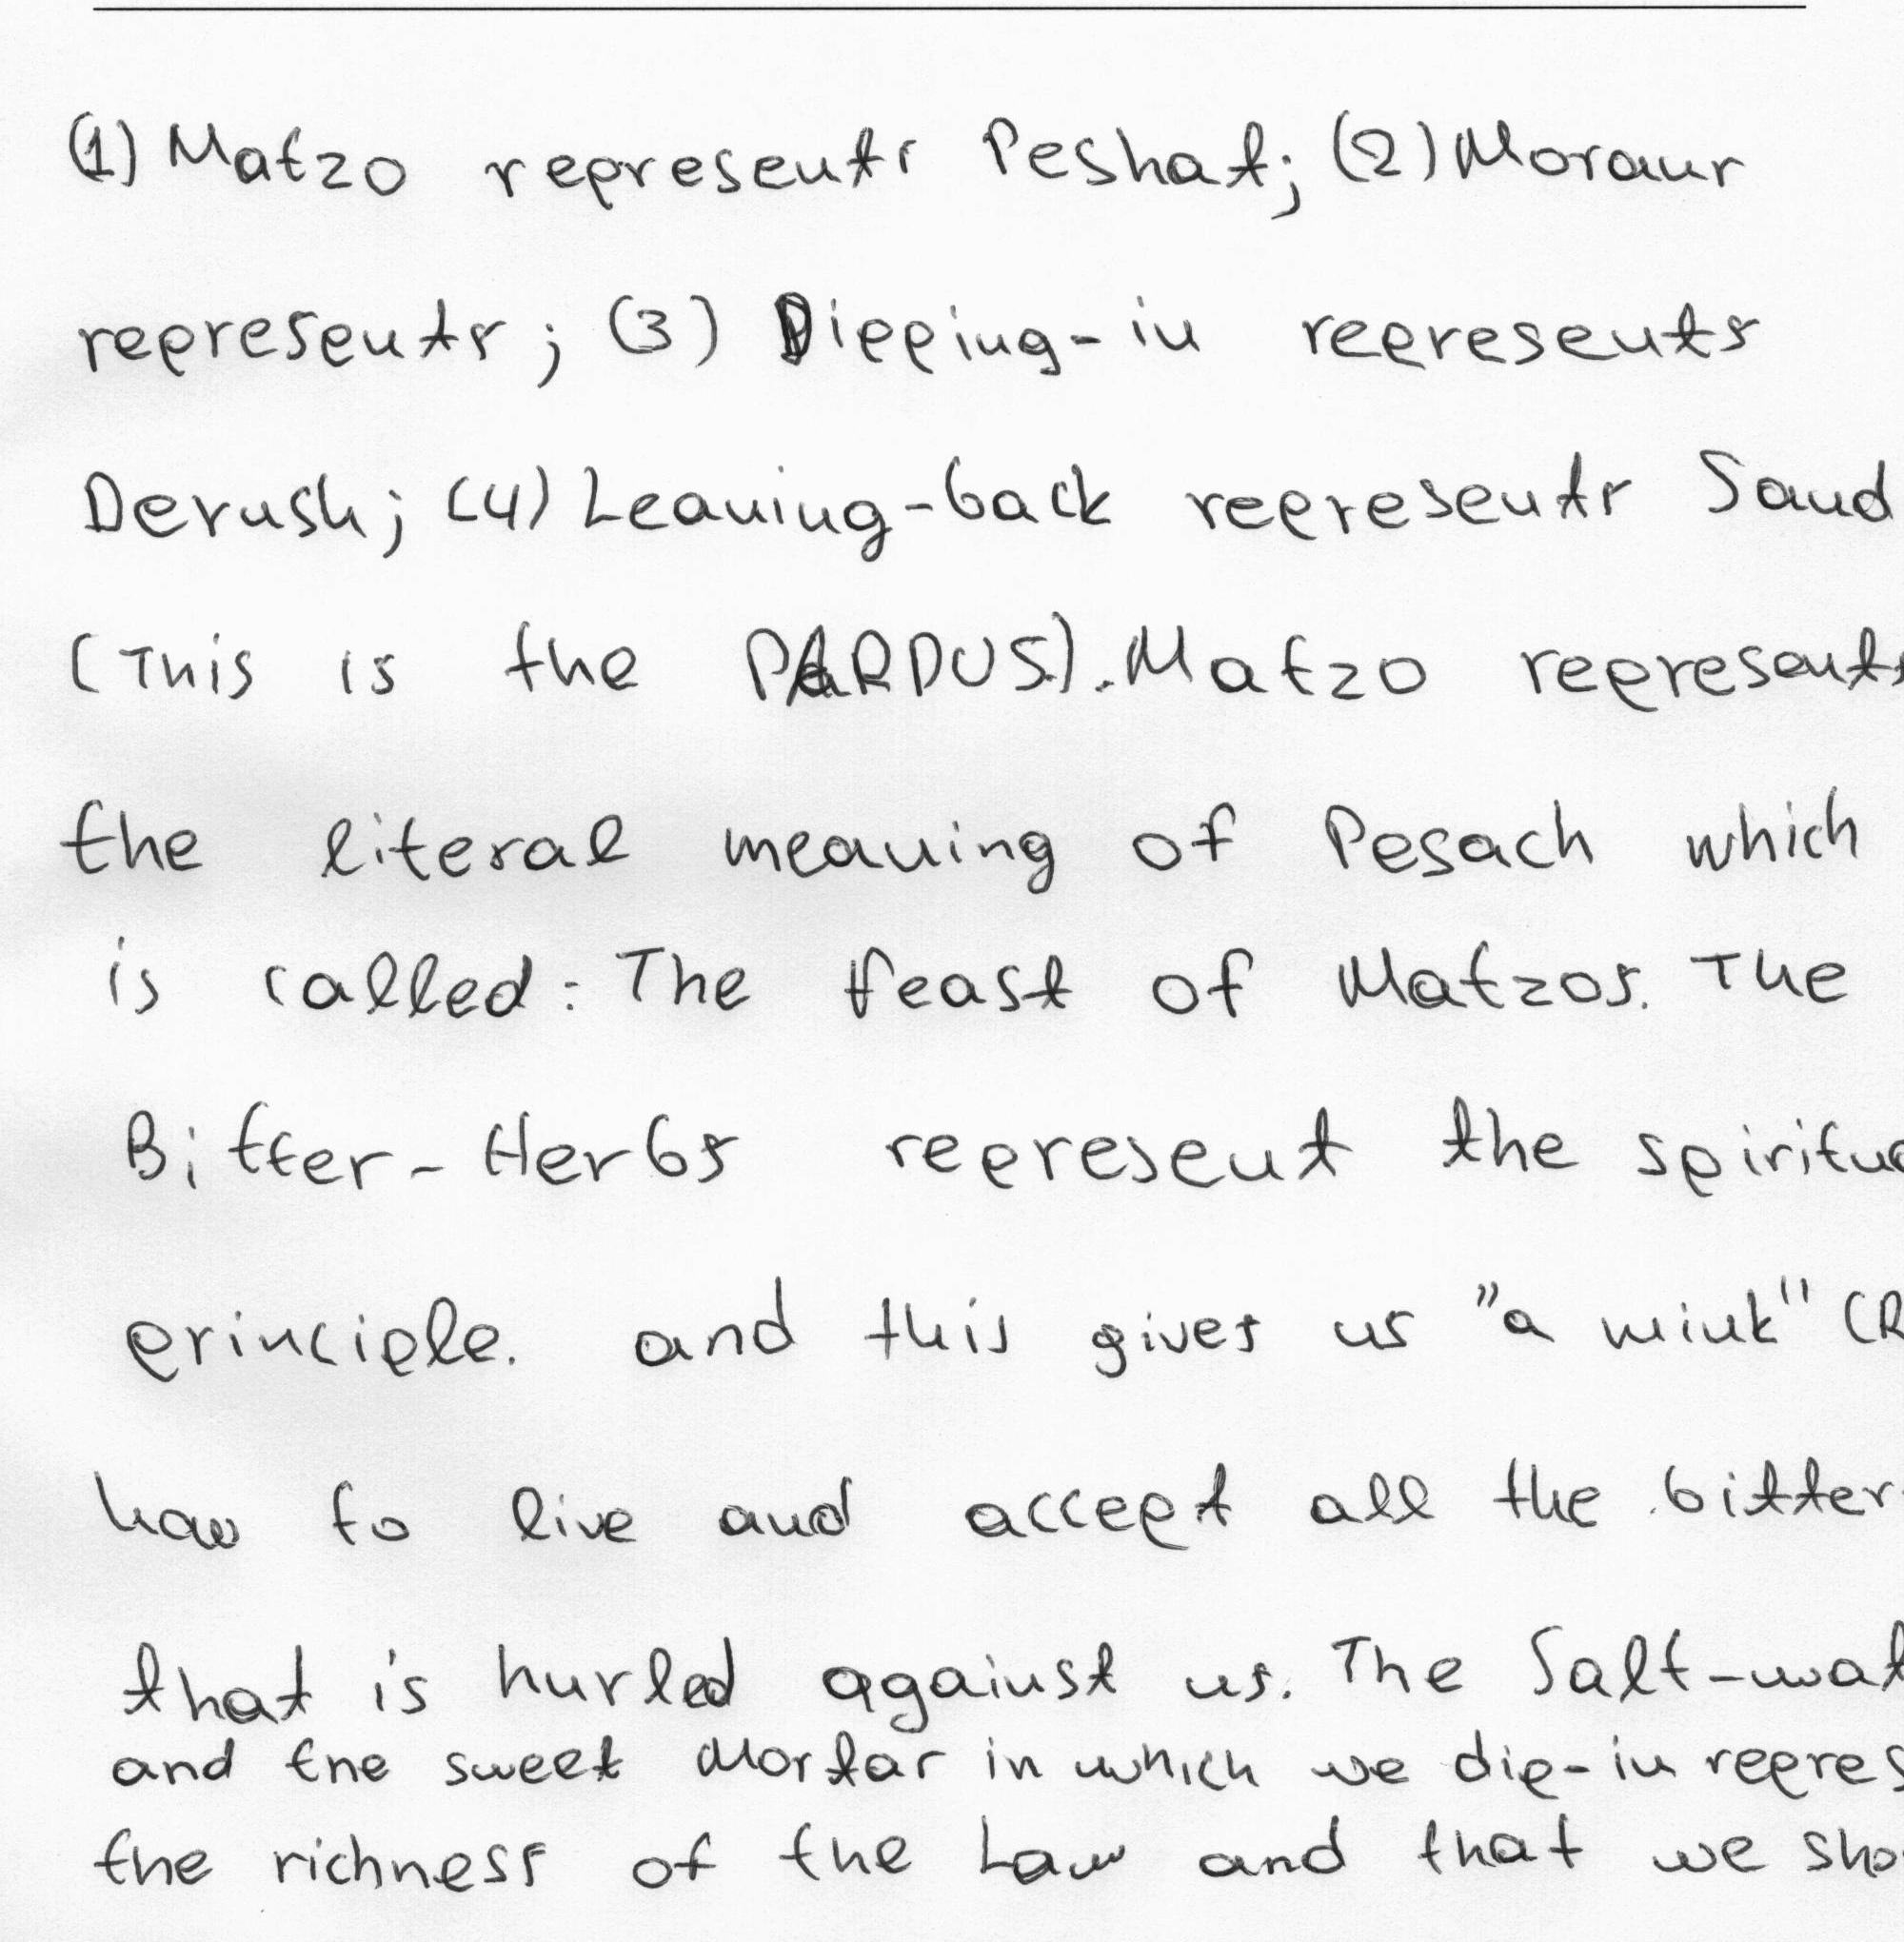 (1) Matzo represents Peshat; (2) Moraur
represents; (3) Dipping-in represents
Derush; (4) Leaning-back represents Saud
(This is the PARDUS). Matzo represents
the literal meaning of Pesach which
is called: The feast of Matzos. The
Bitter-Herbs represent the spiritua
principle. and this gives us "a wink" (R
how to live and accept all the bitter
that is hurled against us. The Salt-wat
and the sweet Mortar in which we dip-in repres
the richness of the Law and that we sho